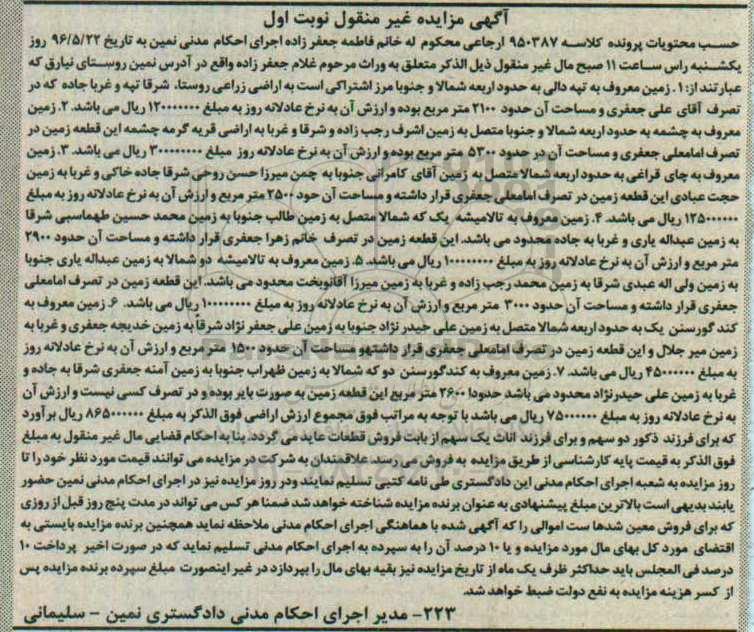 آگهی مزایده غیر منقول نوبت اول
حسب محتویات پرونده کلاسه ۹۵۰۳۸۷ ارجاعی محکوم له خانم فاطمه جعفر زاده اجرای احکام مدنی نمین به تاریخ ۹۶/۵/۲۲ روز
یکشنبه راس ساعت ۱۱ صبح مال غیر منقول ذیل الذکر متعلق به وراث مرحوم غلام جعفر زاده واقع در آدرس نمین روستای نیارق که
عبارتند از: ۱. زمین معروف به تپه دالی به حدود اربعه شمالا و جنوبا مرز اشتراکی است به اراضی زراعی روستا، شرقا تپه و غربا جاده که در
تصرف آقای علی جعفری و مساحت آن حدود ۲۱۰۰ متر مربع بوده و ارزش آن به نرخ عادلانه روز به مبلغ ۱۲۰۰۰۰۰۰۰ ریال می باشد. ۲. زمین
معروف به چشمه به حدود اربعه شمالا و جنوبا متصل به زمین اشرف رجب زاده و شرقا و غربا به اراضی قریه گرمه چشمه این قطعه زمین در
تصرف امامعلی جعفری و مساحت آن در حدود ۵۳۰۰ متر مربع بوده و ارزش آن به نرخ عادلانه روز مبلغ ۳۰۰۰۰۰۰۰۰ ریال می باشد. ۳. زمین
معروف به چای قراغی به حدود اربعه شمالا متصل به زمین آقای کامرانی جنوبا به چمن میرزا حسن روحی شرقا جاده خاکی و غربا به زمین
حجت عبادی این قطعه زمین در تصرف امامعلی جعفری قرار داشته و مساحت آن حود ۲۵۰۰ متر مربع و ارزش آن به نرخ عادلانه روز به مبلغ
۱۲۵۰۰۰۰۰۰ ریال می باشد. ۴. زمین معروف به تالامیشه یک که شمالا متصل به زمین طالب جنوبا به زمین محمد حسین طهماسبی شرقا
به زمین عبداله یاری و غربا به جاده محدود می باشد. این قطعه زمین در تصرف خانم زهرا جعفری قرار داشته و مساحت آن حدود ۲۹۰۰
متر مربع و ارزش آن به نرخ عادلانه روز به مبلغ ۱۰۰۰۰۰۰۰۰ ریال می باشد. ۵. زمین معروف به تالامیشه دو شمالا به زمین عبداله یاری جنوبا
به زمین ولی اله عبدی شرقا به زمین محمد رجب زاده و غربا به زمین میرزا آقانوبخت محدود می باشد. این قطعه زمین در تصرف امامعلی
جعفری قرار داشته و مساحت آن حدود ۳۰۰۰ متر مربع و ارزش آن به نرخ عادلانه روز به مبلغ ۱۰۰۰۰۰۰۰۰ ریال می باشد. ۶. زمین معروف به
کند گورسنن یک به حدود اربعه شمالا متصل به زمین علی حیدر نژاد جنوبا به زمین علی جعفر نژاد شرقاً به زمین خدیجه جعفری و غربا به
زمین میر جلال و این قطعه زمین در تصرف امامعلی جعفری قرار داشتهو مساحت آن حدود ۱۵۰۰ متر مربع و ارزش آن به نرخ عادلانه روز
به مبلغ ۴۵۰۰۰۰۰۰ ریال می باشد. ۷. زمین معروف به کندگورسنن دو که شمالا به زمین ظهراب جنوبا به زمین آمنه جعفری شرقا به جاده و
غربا به زمین علی حیدرنژاد محدود می باشد حدودا ۲۶۰۰ متر مربع این قطعه زمین به صورت بایر بوده و در تصرف کسی نیست و ارزش آن
به نرخ عادلانه روز به مبلغ ۷۵۰۰۰۰۰۰ ریال می باشد با توجه به مراتب فوق مجموع ارزش اراضی فوق الذکر به مبلغ ۸۶۵۰۰۰۰۰۰ ریال برآورد
که برای فرزند ذکور دو سهم و برای فرزند اناث یک سهم از بابت فروش قطعات عاید می گردد. بنا به احکام قضایی مال غیر منقول به مبلغ
فوق الذکر به قیمت پایه کارشناسی از طریق مزایده به فروش می رسد علاقمندان به شرکت در مزایده می توانند قیمت مورد نظر خود را تا
روز مزایده به شعبه اجرای احکام مدنی این دادگستری طی نامه کتبی تسلیم نمایند ودر روز مزایده نیز در اجرای احکام مدنی نمین حضور
یابند بدیهی است بالاترین مبلغ پیشنهادی به عنوان برنده مزایده شناخته خواهد شد ضمنا هر کس می تواند در مدت پنج روز قبل از روزی
که برای فروش معین شدها ست اموالی را که آگهی شده با هماهنگی اجرای احکام مدنی ملاحظه نماید همچنین برنده مزایده بایستی به
اقتضای مورد کل بهای مال مورد مزایده و یا ۱۰ درصد آن را به سپرده به اجرای احکام مدنی تسلیم نماید که در صورت اخیر پرداخت ۱۰
درصد فی المجلس باید حداکثر ظرف یک ماه از تاریخ مزایده نیز بقیه بهای مال را بپردازد در غیر اینصورت مبلغ سپرده برنده مزایده پس
از کسر هزینه مزایده به نفع دولت ضبط خواهد شد.
۲۲۳- مدیر اجرای احکام مدنی دادگستری نمین - سلیمانی